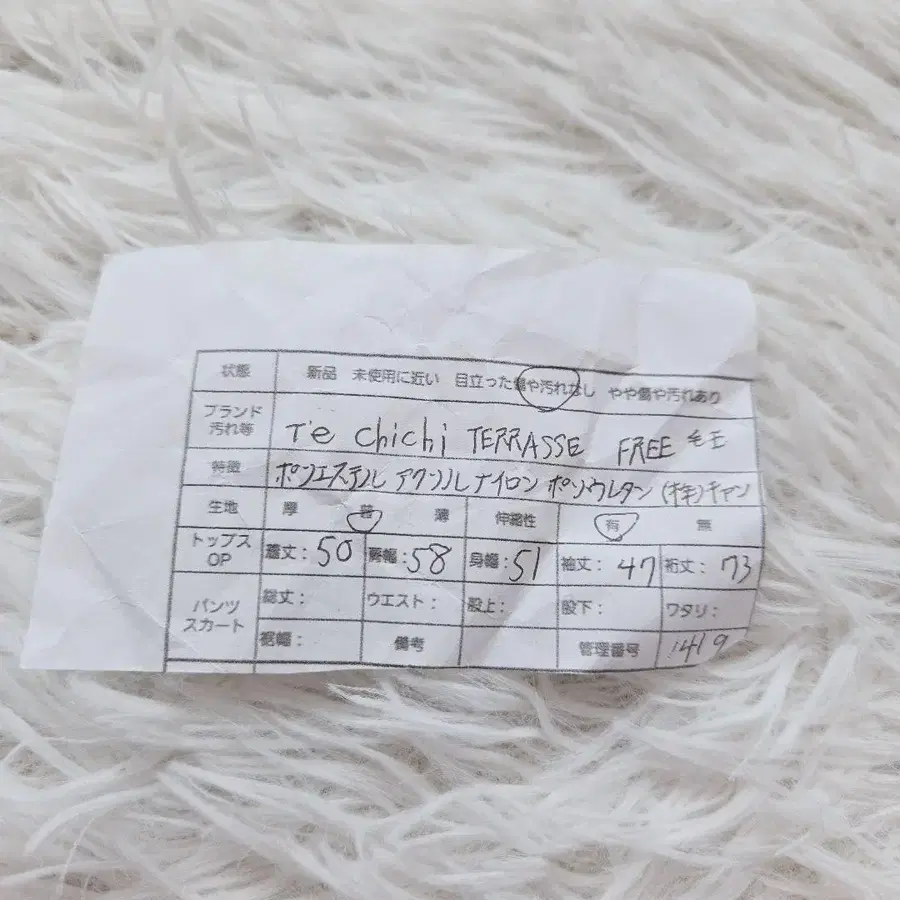 状態 新品 未使用に近い 目立った傷や汚れなし やや傷や汚れあり
ブランド
汚れ等
Te chichi TERRASSE FREE 毛玉
特徴 ポリエステル アクリル ナイロン ポリウレタン (株)キャン
生地 厚 普 薄 伸縮性 有 無
トップス
OP
着丈:50 肩幅:58 身幅:51 袖丈:47 裄丈:73
パンツ
スカート
総丈: ウエスト: 股上: 股下: ワタリ:
裾幅: 備考 管理番号 1419